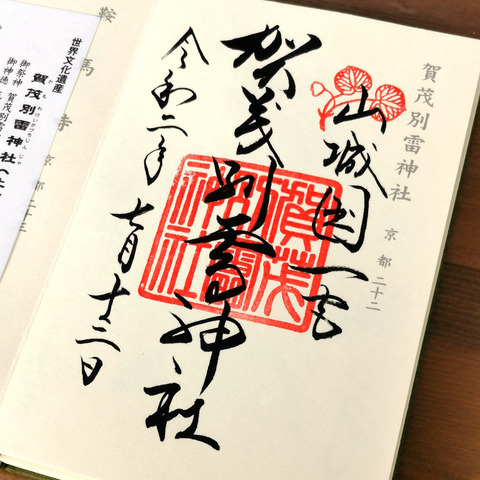 賀茂別雷神社 京都二十二
山城国一宮
賀茂別雷神社
賀茂別雷神社
令和二年
鞍馬寺 京都二十三
世界文化遺産
賀茂別雷神社(上
御祭神 賀茂別雷
御神徳